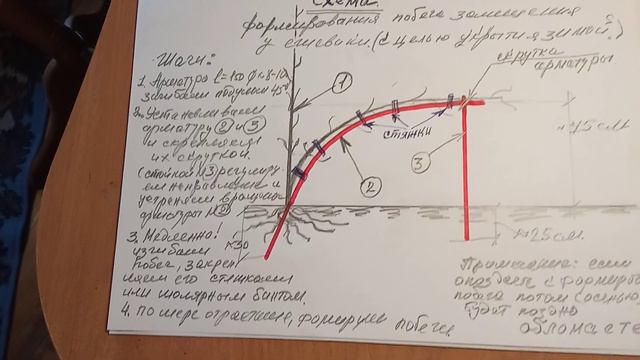 Схема.
формирования побега замещения
у ежевики. (с целью укрытия зимой.)
Шаги:
1. Арматура
загибаем под углом 45°
2. Устанавливаем
арматуру ② и ③
и скрепляем
их скруткой.
(стойкой ③ регулиру
ем направление и
устраняем вращение
арматуры №②
3. Медленно!
изгибаем
побег, закреп
ляем его стяжками
или малярным бинтом.
4. По мере отрастания, формируем побеги.
скрутка
арматуры
①
стяжки
②
③
≈45см
≈30
≈25см.
Примечание: если
опоздаете с формировк
побега потом (осенью)
будет поздно
обломаете